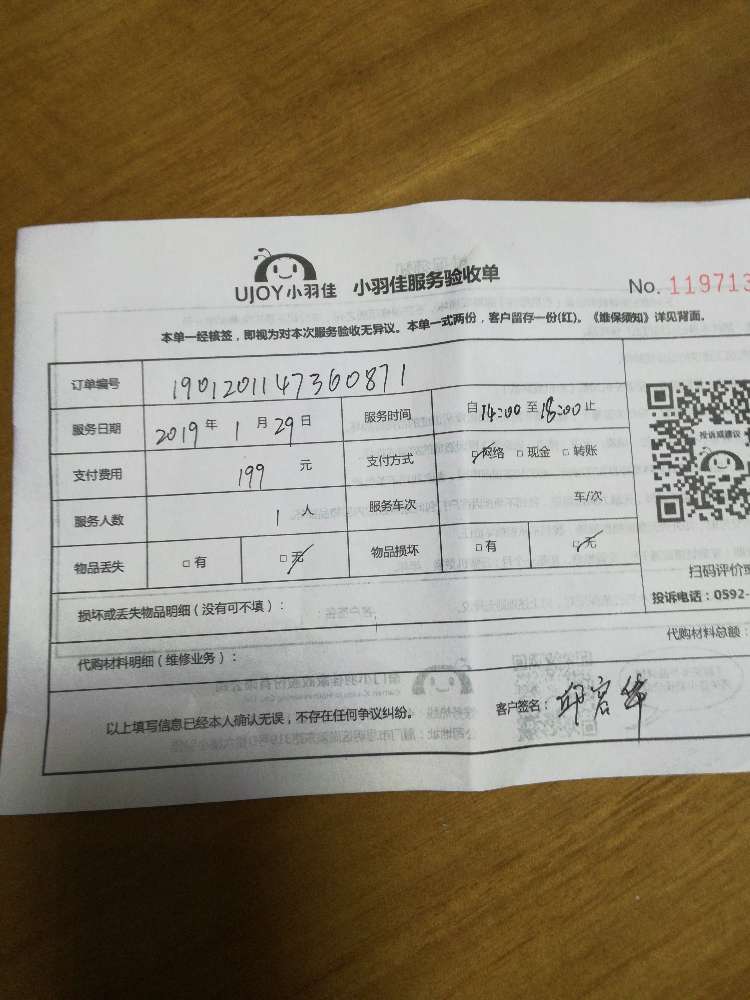 UJOY小羽佳 小羽佳服务验收单 No. 119713
本单一经核签，即视为对本次服务验收无异议。本单一式两份，客户留存一份(红)。《维保须知》详见背面。
订单编号 1901201147360871
服务日期 2019 年 1 月 29 日 服务时间 自 14:00 至 18:00 止
支付费用 199 元 支付方式 ☑网络 □现金 □转账
服务人数 1 人 服务车次 车/次
物品丢失 □有 ☑无 物品损坏 □有 ☑无
投诉或建议
扫码评价
投诉电话：0592-
损坏或丢失物品明细（没有可不填）：
代购材料明细（维修业务）： 代购材料总额：
以上填写信息已经本人确认无误，不存在任何争议纠纷。 客户签名：